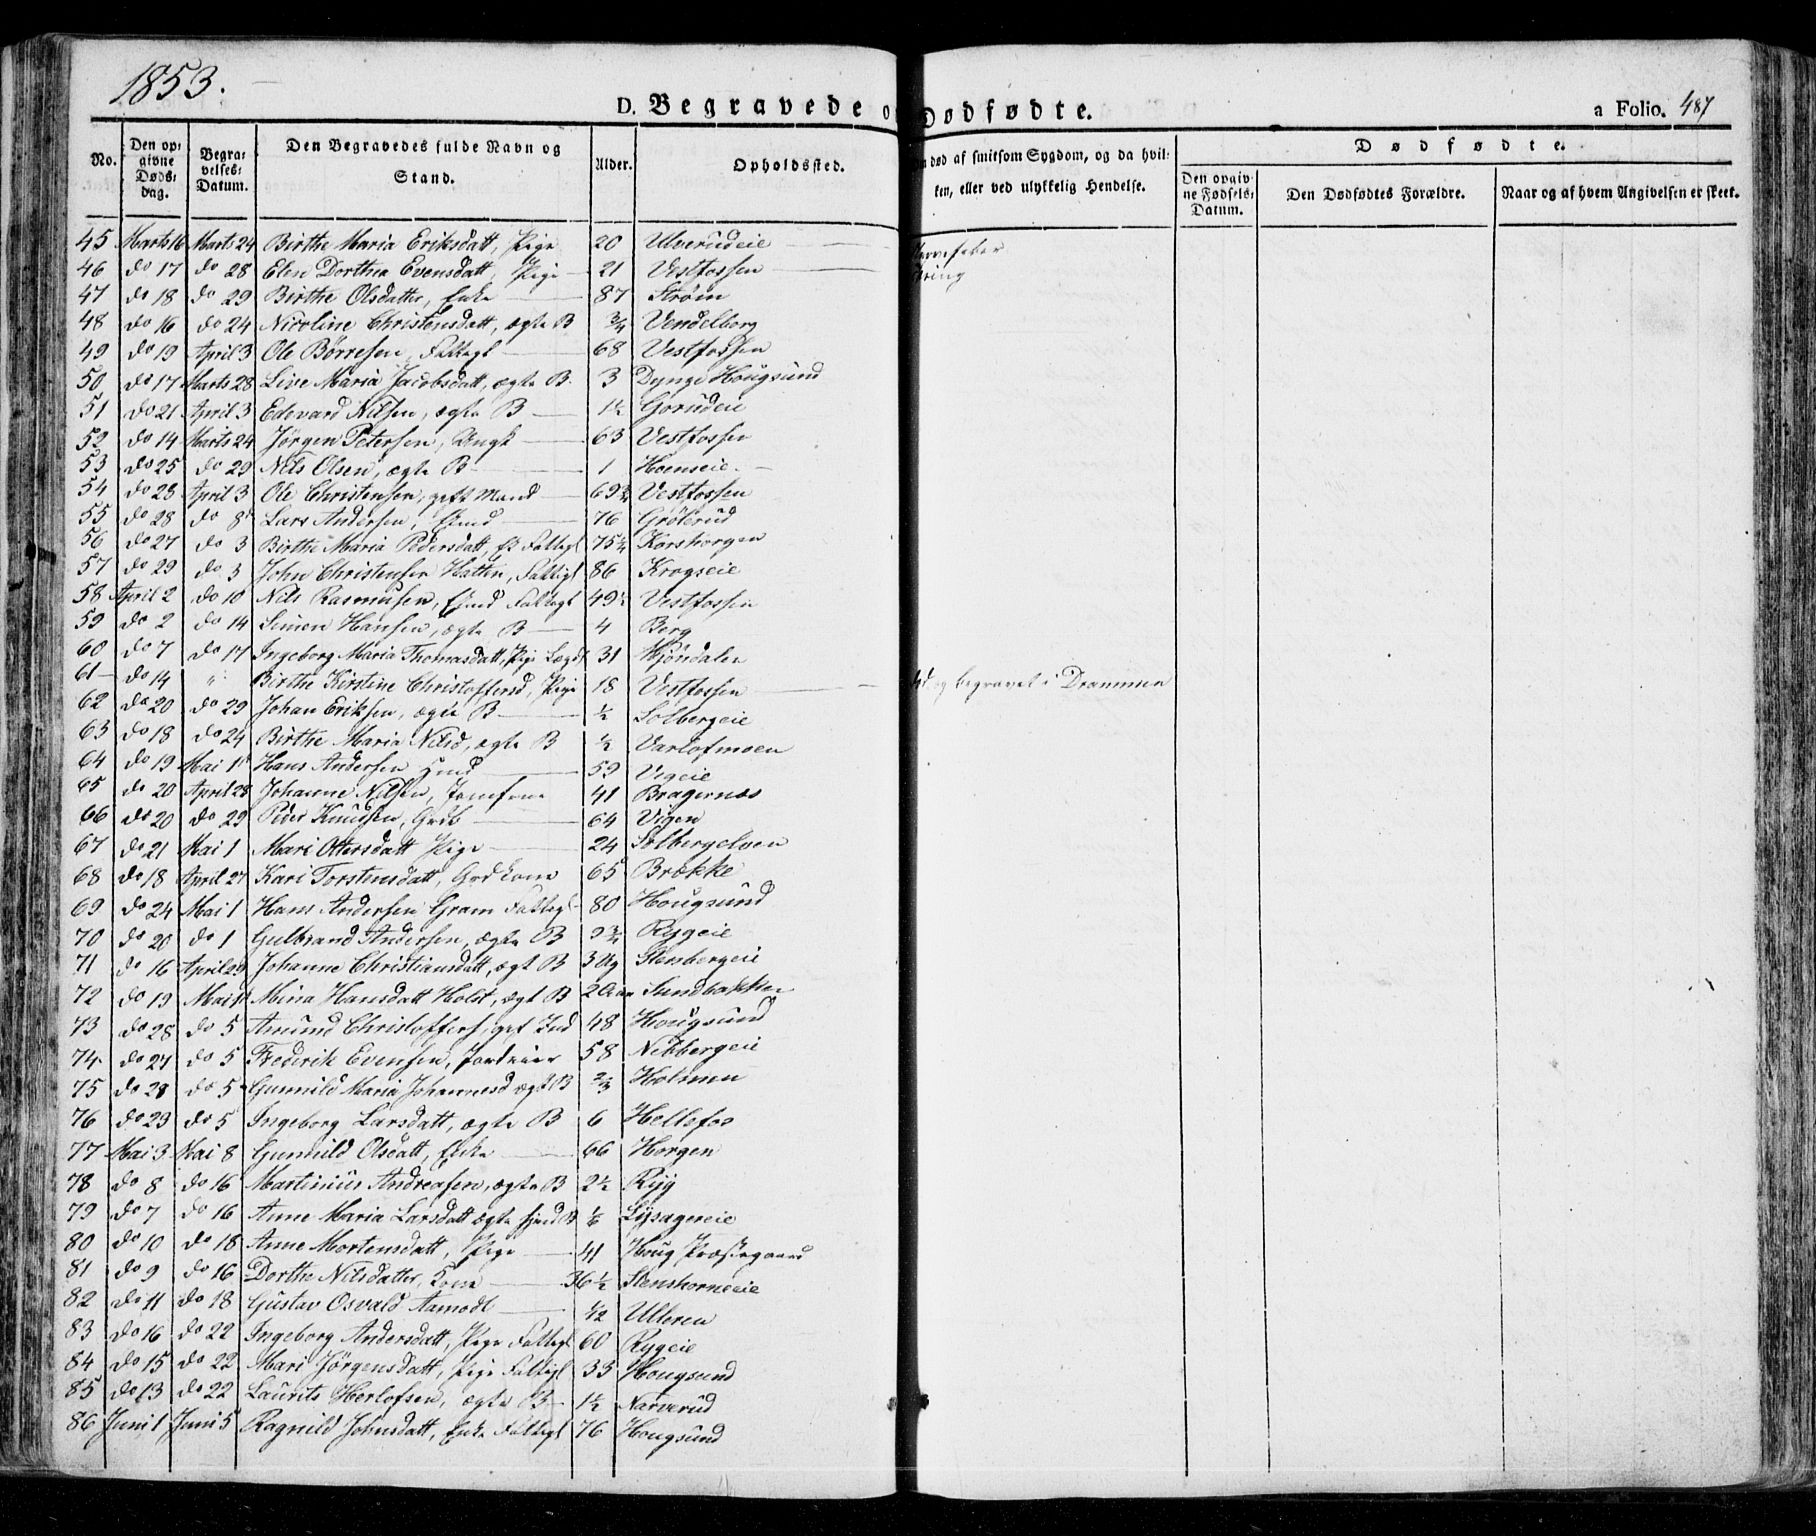 1853.
D. Begravede o Dødfødte.
a Folio. 487
No.
Den op-
givne
Døds-
dag.
Begra-
velses-
Datum.
Den Begravedes fulde Navn og
Stand.
Alder.
Opholdssted.
død af smitsom Sygdom, og da hvil-
ken, eller ved ulykkelig Hendelse.
Dødfødte.
Den opgiv-
ne Fødsels-
Datum.
Den Dødfødtes Forældre.
Naar og af hvem Angivelsen er skeet.
45 Marts 16 Marts 24 Birthe Maria Eriksdatt, Pige 20 Ulverudeie Nervefeber
46 do 17 do 28 Elen Dorthea Evensdatt, Pige 21 Vestfossen
47 do 18 do 29 Birthe Olsdatter, Enke 87 Strøm
48 do 16 do 24 Nicoline Christensdatt, ægte B 3/4 Vendelborg
49 do 19 April 3 Ole Børresen, Fattigl 68 Vestfossen
50 do 17 Marts 28 Live Maria Jacobsdatt, ægte B. 3 Dynge Hougsund
51 do 21 April 3 Edevard Nilsen, ægte B 1½ Gorudeie
52 do 14 Marts 24 Jørgen Petersen, Ungk 63 Vestfossen
53 do 25 do 29 Nils Olsen, ægte B 1 Hoenseie
54 do 23 April 3 Ole Christensen, gift Mand 69 3/4 Vestfossen
55 do 28 do 8 Lars Andersen, 76 Grøterud
56 do 27 do 3 Birthe Maria Pedersdatt, E Fattigl 75 ¼ Korshorgen
57 do 29 do 3 John Christensen Hatten, Fattigl 86 Krogseie
58 April 2 do 10 Nils Rasmusen, Fattigl 49½ Vestfossen
59 do 2 do 14 Simen Hansen, ægte B 4 Berg
60 do 7 do 17 Ingeborg Maria Thomasdatt, Pige Lægd 31 Mjøndalen
61 do 14 " Birthe Kirstine Christoffersd, Pige 18 Vestfossen og begravet i Drammen
62 do 20 do 29 Johan Eriksen, ægte B ½ Solbergeie
63 do 18 do 24 Birthe Maria Nilsd, ægte B ½ Varlofmoen
64 do 19 Mai 1 Hans Andersen Hmd 59 Vigeie
65 do 20 April 28 Johanne Nilsen, Jomfrue 41 Bragernæs
66 do 20 do 29 Peder Knudsen, Grdb 64 Vigen
67 do 21 Mai 1 Mari Ottersdatt Pige 24 Solbergelven
68 do 18 April 27 Kari Torstensdatt, Grdkone 65 Brække
69 do 24 Mai 1 Hans Andersen Gram Fattigl 80 Hougsund
70 do 20 do 1 Gulbrand Andersen, ægte B 9 3/4 Rygeie
71 do 16 April 29 Johanne Christiansdatt, ægt B 3 Ug Stensbergeie
72 do 19 Mai 1 Mina Hansdatt Holst, ægt B 2 Aar Sundbakken
73 do 28 do 5 Amund Christoffers, gift Ind 48 Hougsund
74 do 27 do 5 Frederik Evensen, Jordeier 58 Nebbergeie
75 do 28 do 5 Gunnild Maria Johannesd ægt B 2/3 Holmen
76 do 23 do 5 Ingeborg Larsdatt, ægte B 6 Hellefos
77 Mai 3 Mai 8 Gunnild Olsdatt, Enke 66 Horgen
78 do 8 do 16 Martinius Andreasen, ægte B 2½ Ryg
79 do 7 do 16 Anne Maria Larsdatt ægte B 1/6 Lysagereie
80 do 10 do 18 Anne Mortensdatt, Pige 41 Houg Præstegaard
81 do 9 do 16 Dorthe Nilsdatter, Kone 36½ Stenshorneeie
82 do 11 do 18 Gustav Osvald Aamodt 1/12 Ulleren
83 do 16 do 22 Ingeborg Andersdatt, Pige Fattigl 60 Rygeie
84 do 15 do 22 Mari Jørgensdatt, Pige Fattigl 33 Hougsund
85 do 13 do 22 Laurits Herlofsen, ægte B 1½ Narverud
86 Juni 1 Juni 5 Ragnild Johnsdatt, Enke Fattigl 76 Hougsund